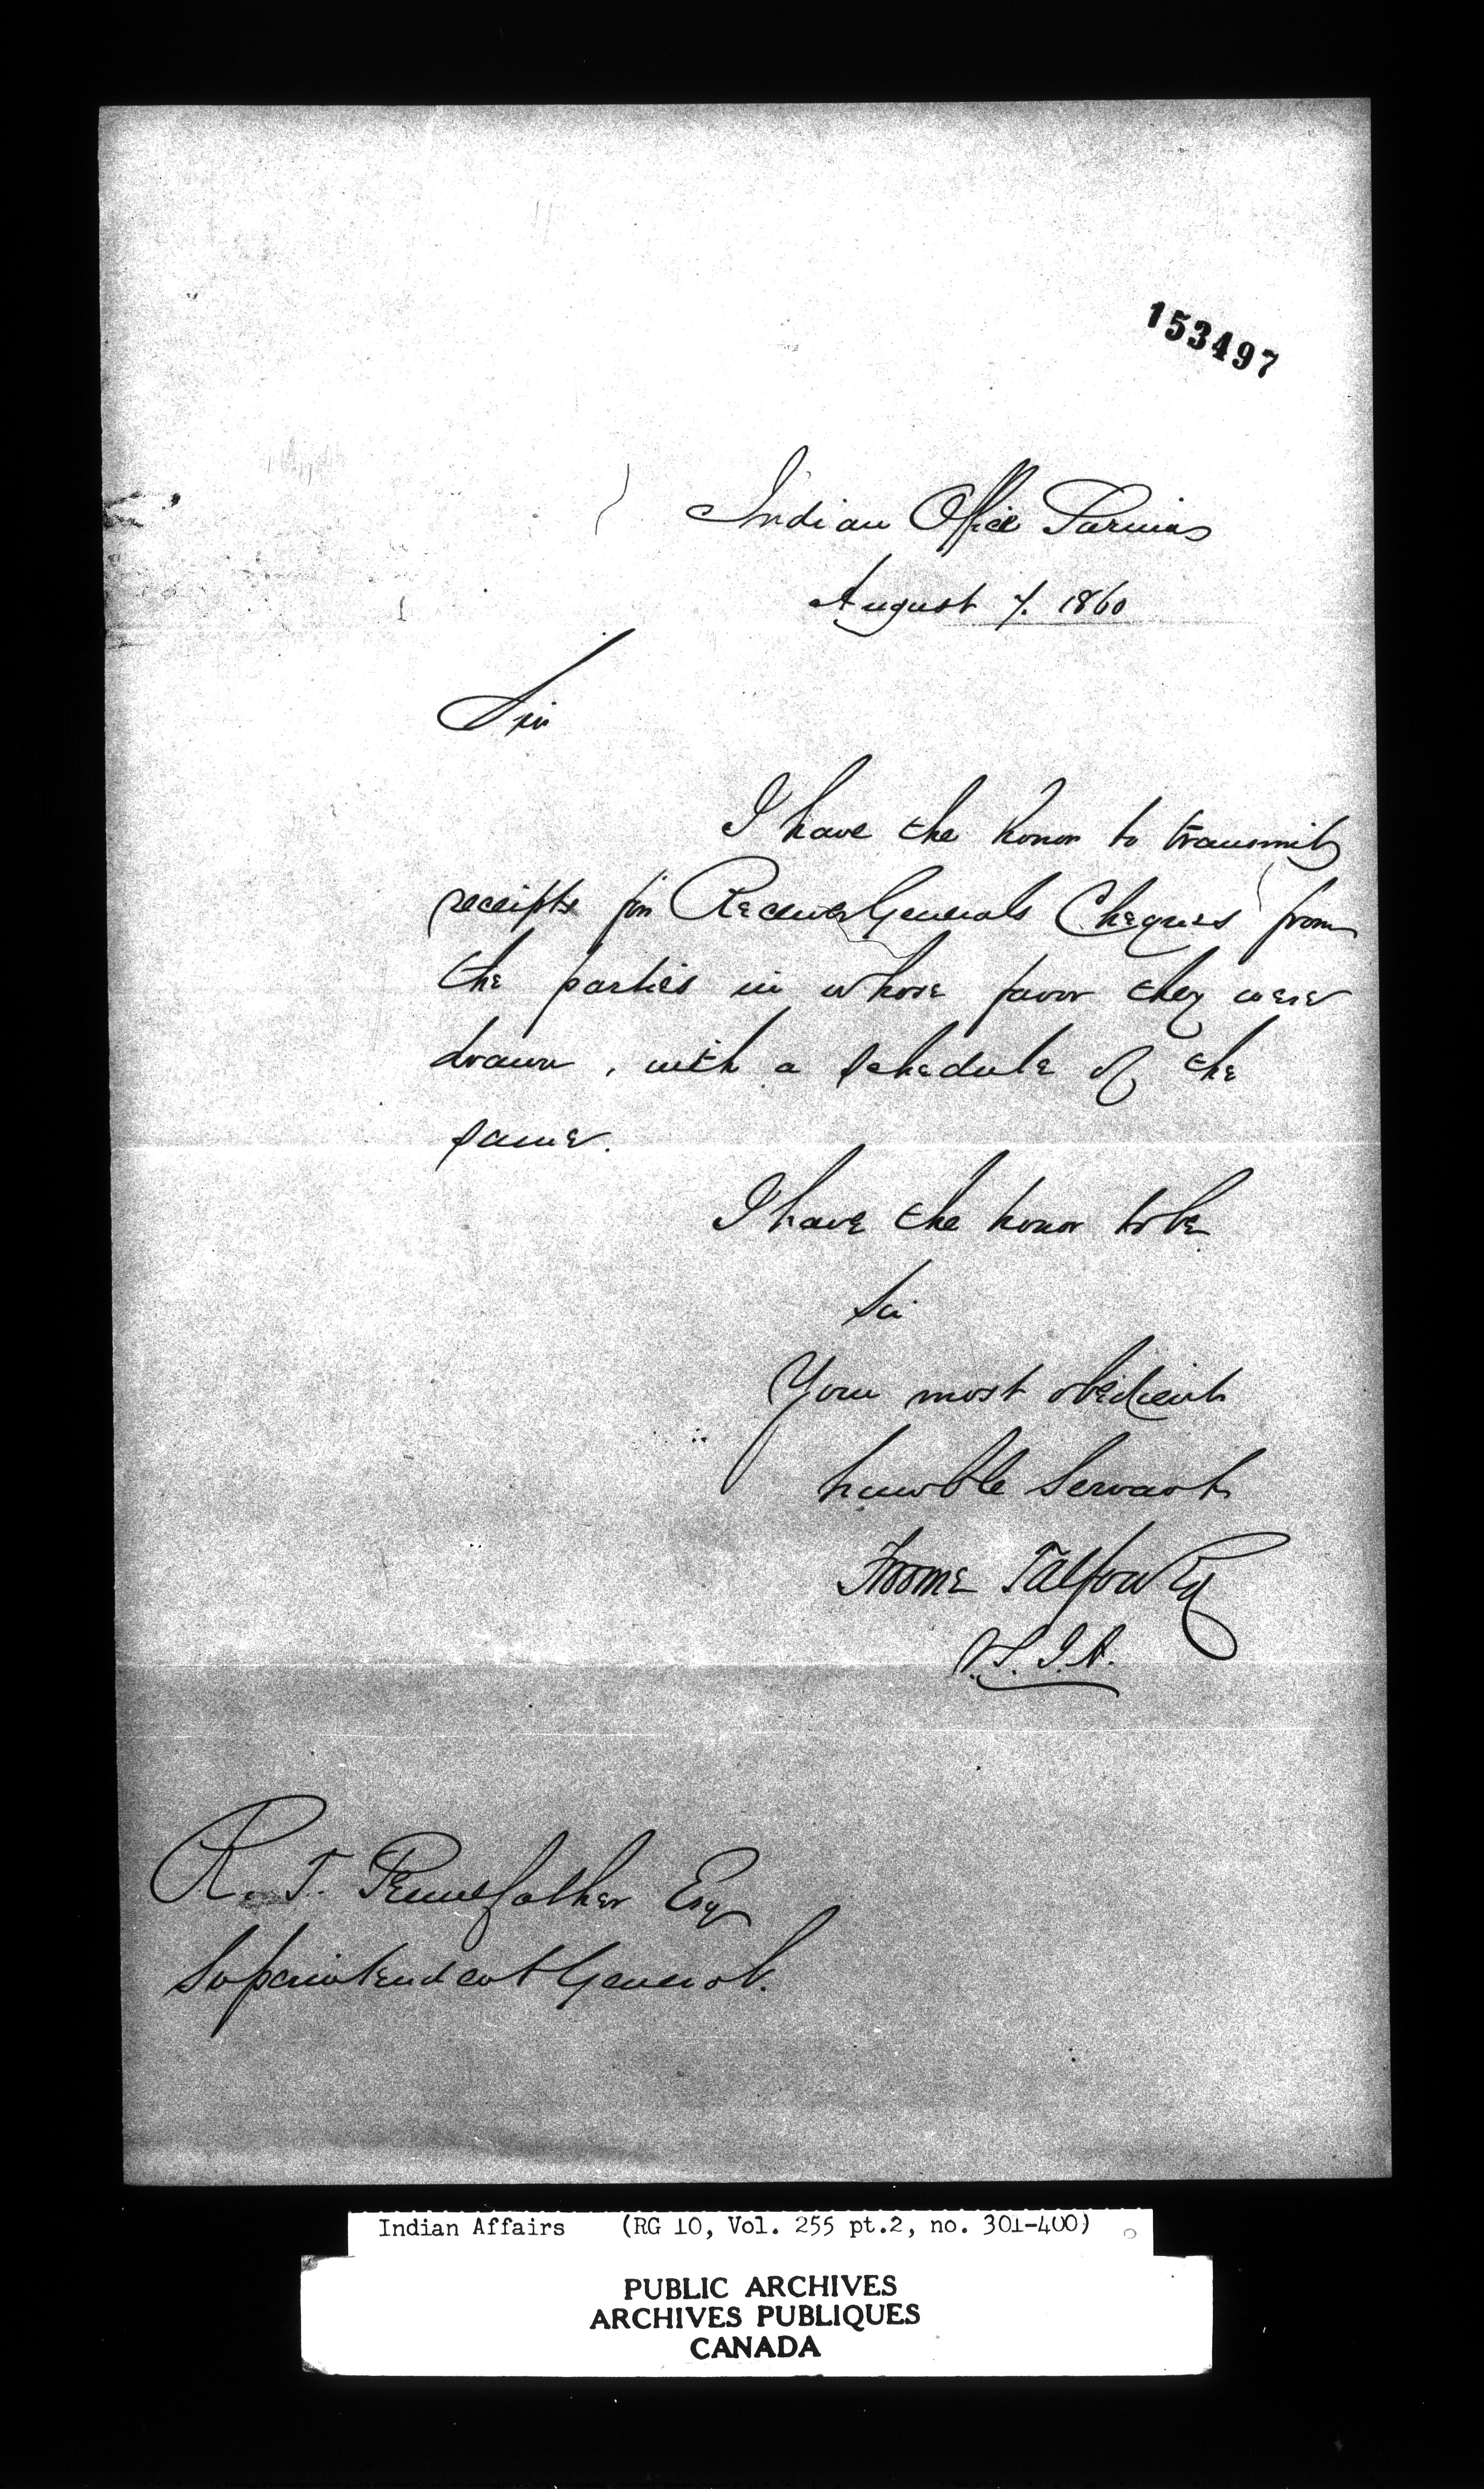 153497
Indian Office Sarnia
August 7. 1860
Sir
I have the honor to transmit
receipts for Receiver Generals Cheques from
the parties in whose favor they were
drawn, with a schedule of the
same.
I have the honor to be
Sir
Your most obedient
humble Servant
Froome Talfourd
V.S.I.A.
R. T. Pennefather Esq
Superintendent General.
Indian Affairs (RG 10, Vol. 255 pt.2, no. 301-400)
PUBLIC ARCHIVES
ARCHIVES PUBLIQUES
CANADA